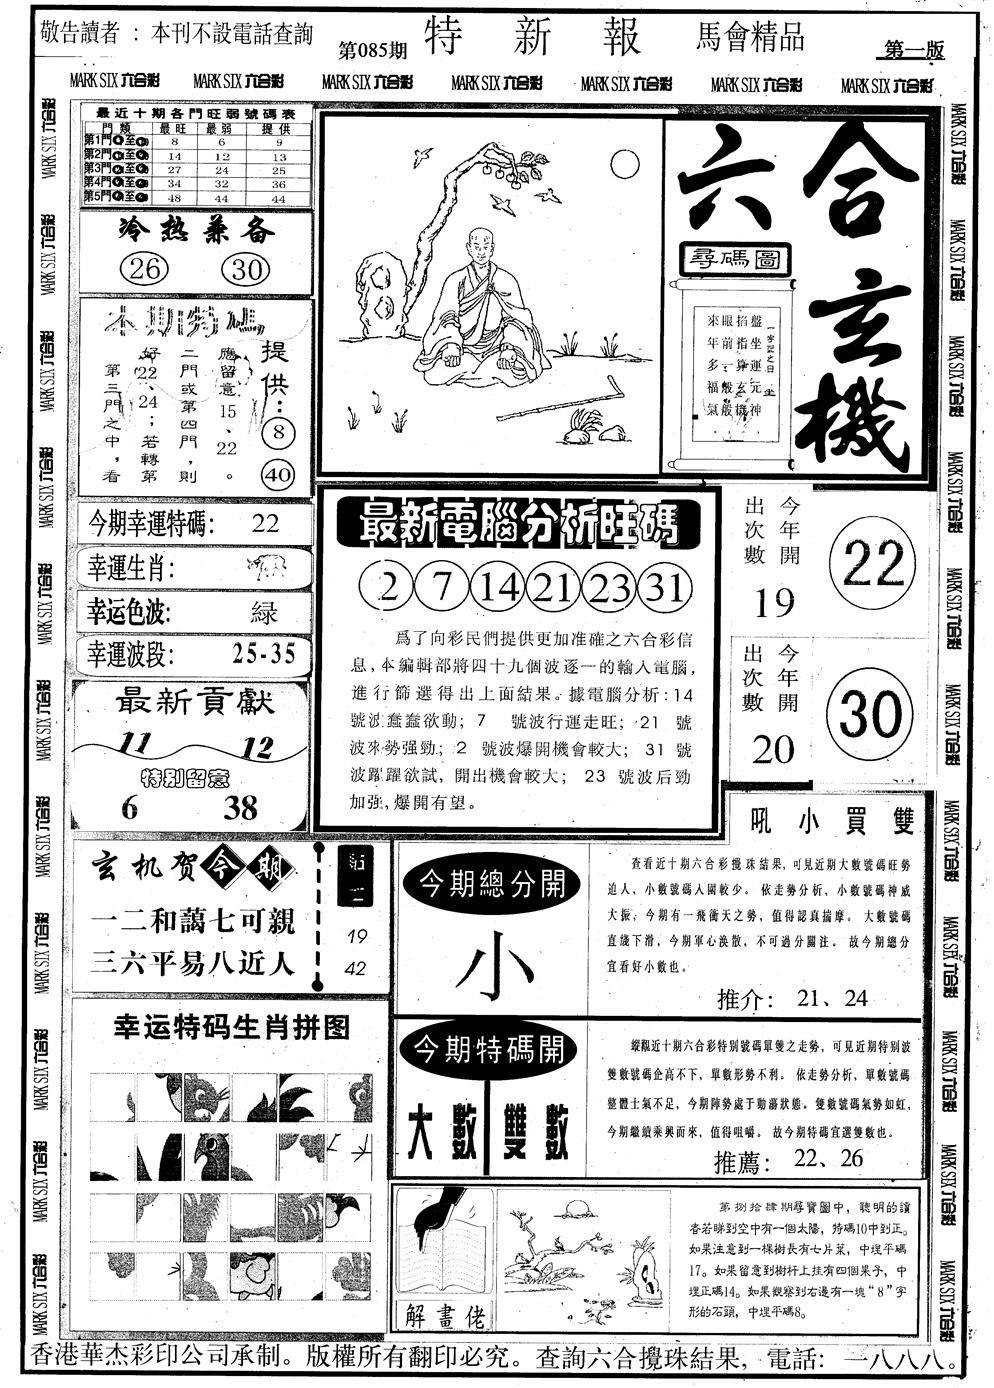 敬告讀者：本刊不設電話查詢
第085期
特新報
馬會精品
第一版
MARK SIX 六合彩 MARK SIX 六合彩 MARK SIX 六合彩 MARK SIX 六合彩 MARK SIX 六合彩 MARK SIX 六合彩 MARK SIX 六合彩
最近十期各門旺弱號碼表
門類 最旺 最弱 提供
第1門 至 8 6 9
第2門 至 14 12 13
第3門 至 27 24 25
第4門 至 34 32 36
第5門 至 48 44 44
冷热兼备
26 30
本期特碼
提供：8 40
應留意15、22。
二門或第四門，則
好22、24；若轉第
第三門之中，看
今期幸運特碼： 22
幸運生肖：
幸运色波： 緑
幸運波段： 25-35
最新貢獻
11 12
特别留意
6 38
六合玄機
尋碼圖
一字記之曰：坐
盤坐運元神
掐指算玄機
眼前一般般
來年多福氣
最新電腦分析旺碼
2 7 14 21 23 31
爲了向彩民們提供更加准確之六合彩信
息，本編輯部將四十九個波逐一的輸入電腦，
進行篩選得出上面結果。據電腦分析：14
號波蠢蠢欲動；7 號波行運走旺；21 號
波來勢强勁；2 號波爆開機會較大；31 號
波躍躍欲試，開出機會較大；23 號波后勁
加強，爆開有望。
今年開
出次數
19
22
今年開
出次數
20
30
玄机贺今期
一二和藹七可親
三六平易八近人
19
42
今期總分開
小
吼小買雙
查看近十期六合彩攪珠結果，可見近期大數號碼旺勢
迫人，小數號碼入圍較少。依走勢分析，小數號碼神威
大振，今期有一飛衝天之勢，值得認真揣摩。大數號碼
直綫下滑，今期軍心渙散，不可過分關注。故今期總分
宜看好小數也。
推介： 21、24
今期特碼開
大數 雙數
縱觀近十期六合彩特别號碼單雙之走勢，可見近期特别波
雙數號碼企高不下，單數形勢不利。依走勢分析，單數號碼
整體士氣不足，今期陣勢處于動蕩狀態。雙數號碼氣勢如虹，
今期繼續乘興而來，值得咀嚼。故今期特碼宜選雙數也。
推薦： 22、26
幸运特码生肖拼图
解畫佬
第捌拾肆期尋寶圖中，聰明的讀
者若睇到空中有一個太陽，特碼10中到正。
如果注意到一棵樹長有七片葉，中埋平碼
17。如果留意到樹杆上挂有四個果子，中
埋正碼14。如果觀察到右邊有一塊“8”字
形的石頭，中埋平碼8。
香港華杰彩印公司承制。版權所有翻印必究。查詢六合攪珠結果，電話：一八八八。